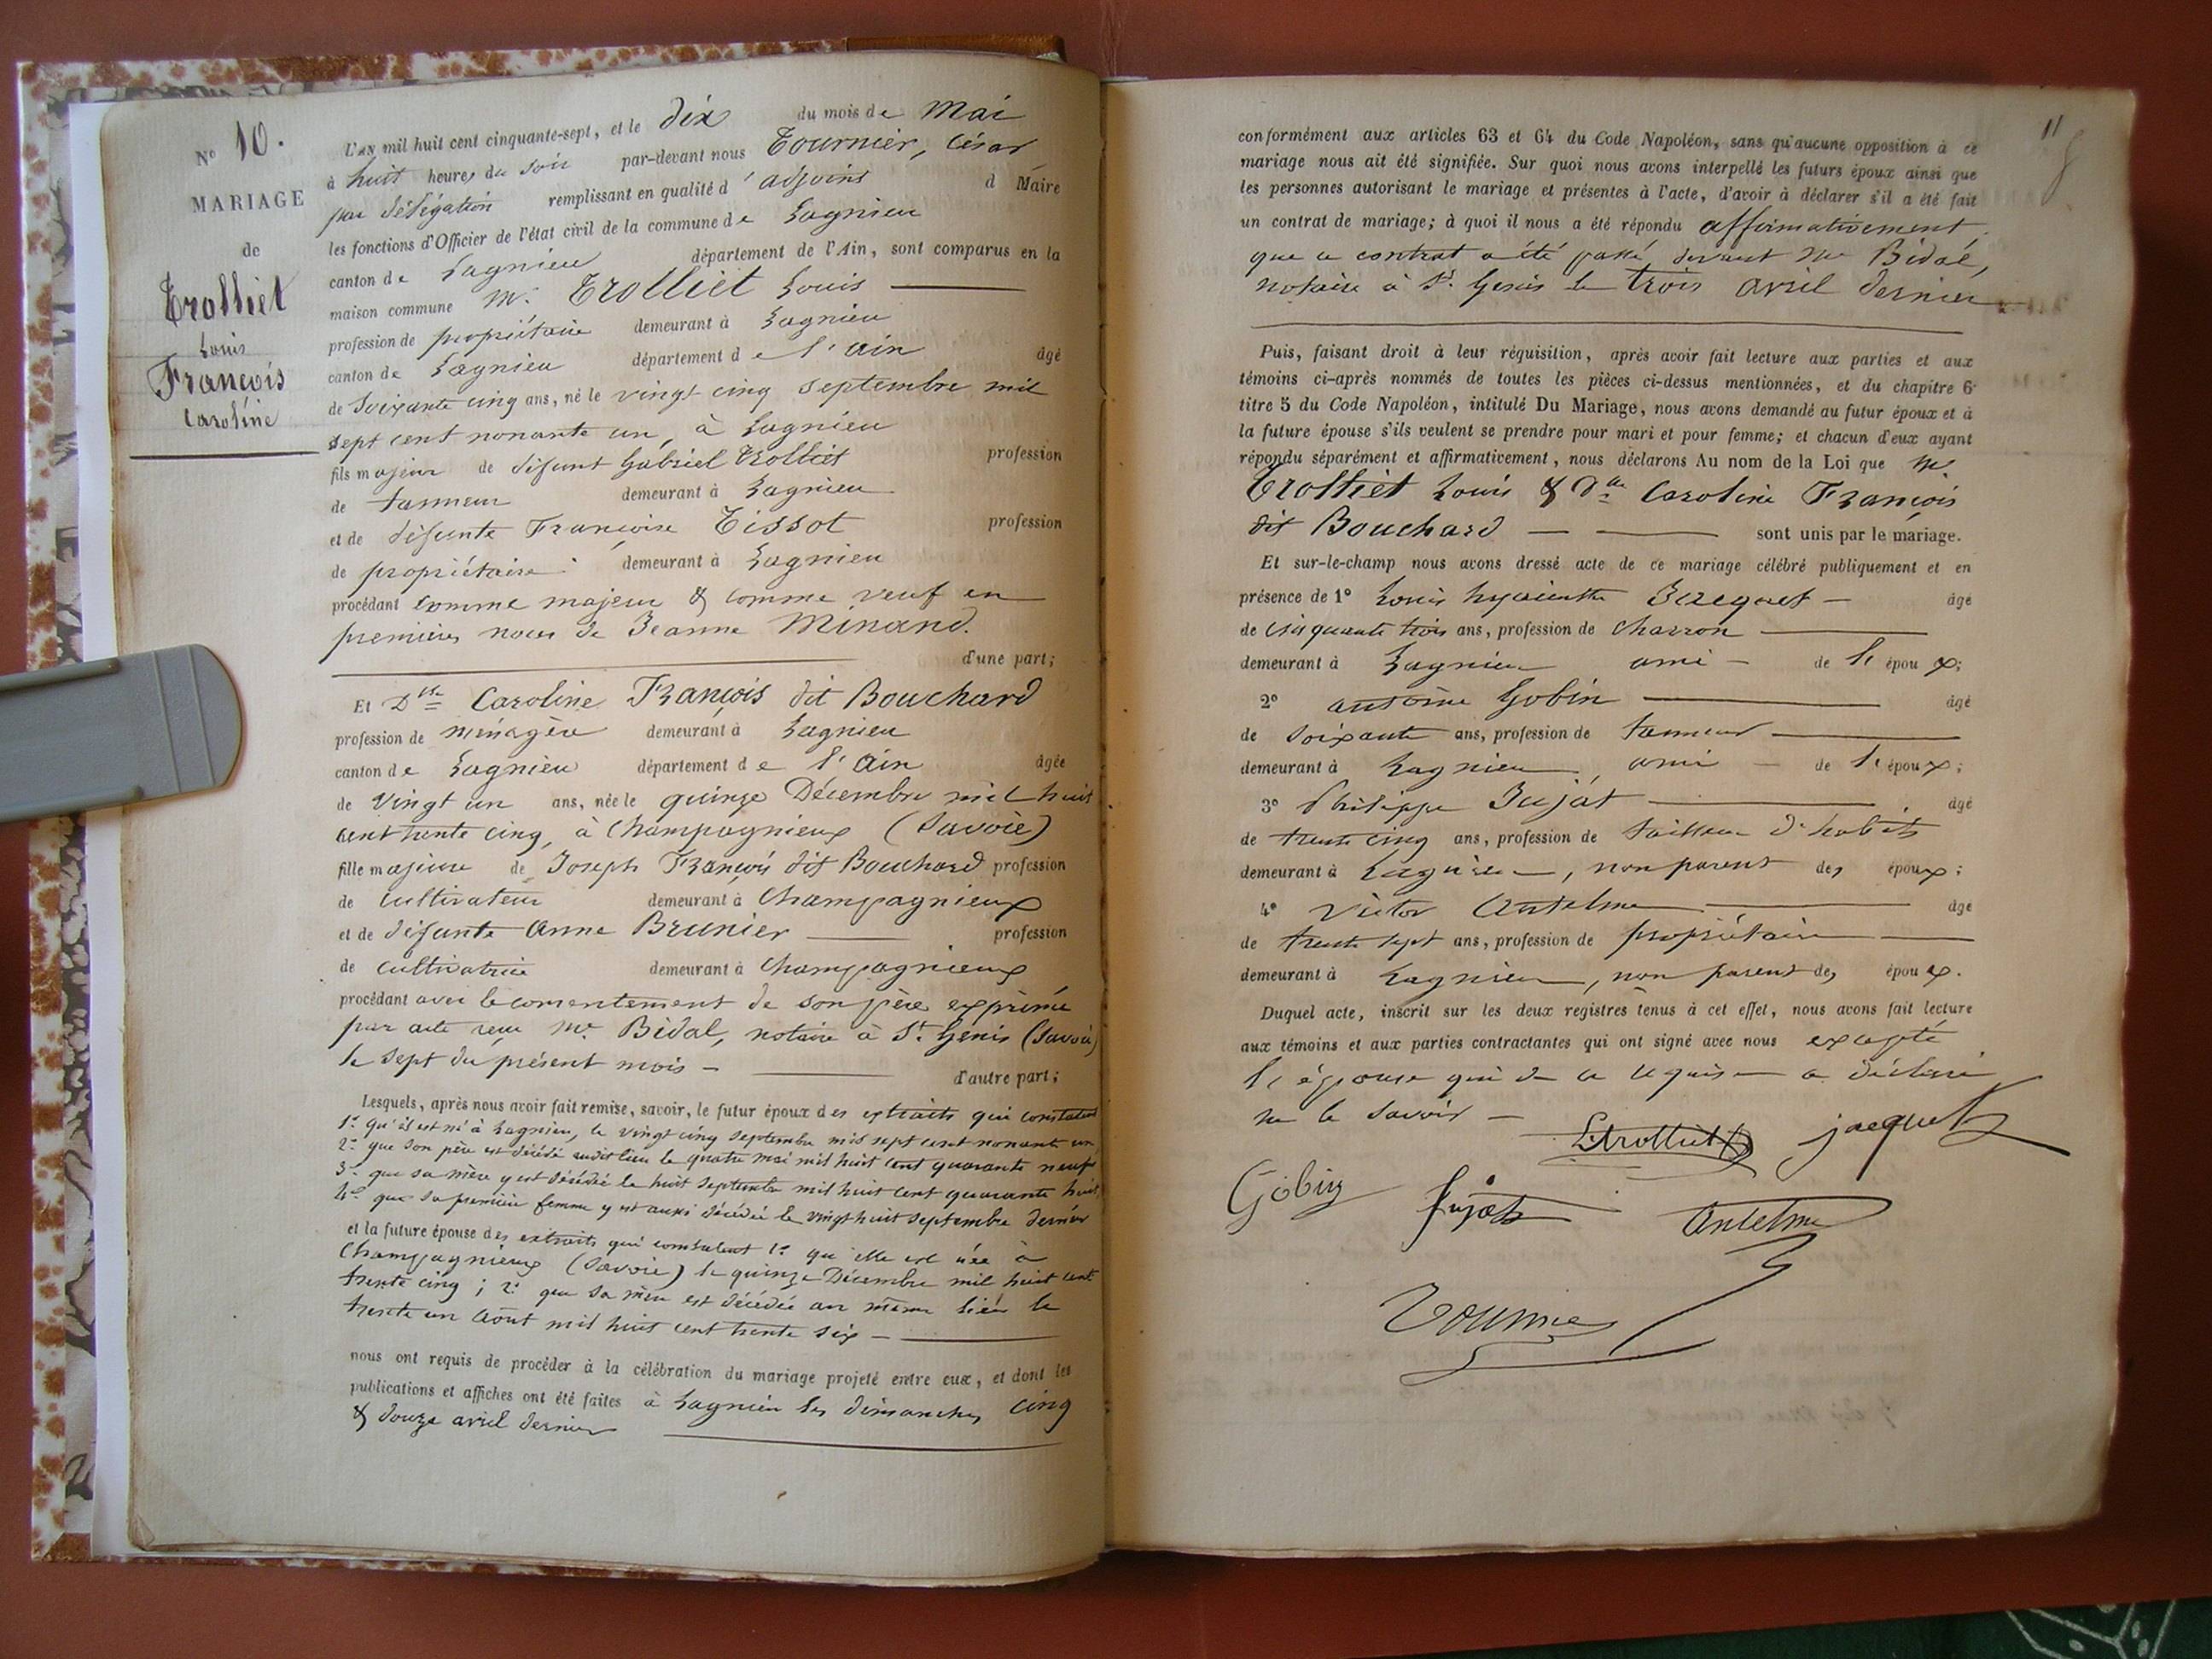 N° 10.
MARIAGE
de
Trolliet
Louis
François
Caroline
L'AN mil huit cent cinquante-sept, et le dix du mois de Mai
à huit heures du soir par-devant nous Tournier, César
par délégation remplissant en qualité d'adjoint d Maire
les fonctions d'Officier de l'état civil de la commune de Lagnieu
canton de Lagnieu département de l'Ain, sont comparus en la
maison commune Mr. Trolliet Louis
profession de propriétaire demeurant à Lagnieu
canton de Lagnieu département de l'ain âgé
de soixante cinq ans, né le vingt cinq septembre mil
sept cent nonante un, à Lagnieu
fils majeur de défunt Gabriel Trolliet profession
de tanneur demeurant à Lagnieu
et de défunte Françoise Tissot profession
de propriétaire demeurant à Lagnieu
procédant comme majeur & comme veuf en
premières noces de Jeanne Minand.
d'une part;
Et Dlle Caroline François dit Bouchard
profession de ménagère demeurant à Lagnieu
canton de Lagnieu département de l'ain âgée
de vingt un ans, née le quinze Décembre mil huit
cent trente cinq, à Champagnieux (Savoie)
fille majeure de Joseph François dit Bouchard profession
de cultivateur demeurant à Champagnieux
et de défunte Anne Brunier profession
de cultivatrice demeurant à Champagnieux
procédant avec le consentement de son père exprimé
par acte reçu Me Bidal, notaire à St. Genis (Savoie)
le sept du présent mois —
d'autre part;
Lesquels, après nous avoir fait remise, savoir, le futur époux des extraits qui constatent
1° qu'il est né à Lagnieu, le vingt cinq septembre mil sept cent nonante un
2° que son père est décédé audit lieu le quatre mai mil huit cent quarante neuf
3° que sa mère y est décédée le huit septembre mil huit cent quarante huit,
4° que sa première femme y est aussi décédée le vingt huit septembre dernier
et la future épouse des extraits qui constatent 1° qu'elle est née à
Champagnieux (Savoie) le quinze Décembre mil huit cent
trente cinq; 2° que sa mère est décédée au même lieu le
trente un août mil huit cent trente six —
nous ont requis de procéder à la célébration du mariage projeté entre eux, et dont les
publications et affiches ont été faites à Lagnieu les dimanches cinq
& douze avril dernier
11
conformément aux articles 63 et 64 du Code Napoléon, sans qu'aucune opposition à ce
mariage nous ait été signifiée. Sur quoi nous avons interpellé les futurs époux ainsi que
les personnes autorisant le mariage et présentes à l'acte, d'avoir à déclarer s'il a été fait
un contrat de mariage; à quoi il nous a été répondu affirmativement,
que ce contrat a été passé devant Me Bidal,
notaire à St. Genis le trois avril dernier
Puis, faisant droit à leur réquisition, après avoir fait lecture aux parties et aux
témoins ci-après nommés de toutes les pièces ci-dessus mentionnées, et du chapitre 6
titre 5 du Code Napoléon, intitulé Du Mariage, nous avons demandé au futur époux et à
la future épouse s'ils veulent se prendre pour mari et pour femme; et chacun d'eux ayant
répondu séparément et affirmativement, nous déclarons Au nom de la Loi que Mr.
Trolliet Louis & Dlle Caroline François
dit Bouchard — sont unis par le mariage.
Et sur-le-champ nous avons dressé acte de ce mariage célébré publiquement et en
présence de 1° Louis hyacinthe Jacquet — âgé
de cinquante trois ans, profession de charron
demeurant à Lagnieu ami — de l' époux;
2° antoine Gobin âgé
de soixante ans, profession de tanneur
demeurant à Lagnieu, ami — de l' époux;
3° Philippe Jujat âgé
de trente cinq ans, profession de tailleur d'habits
demeurant à Lagnieu, non parent des époux;
4° Victor Antelme âgé
de trente sept ans, profession de propriétaire
demeurant à Lagnieu, non parent des époux.
Duquel acte, inscrit sur les deux registres tenus à cet effet, nous avons fait lecture
aux témoins et aux parties contractantes qui ont signé avec nous excepté
l'épouse qui de ce requise a déclaré
ne le savoir —
L. trolliet jacquet
Gobin jujat Antelme
Tournier